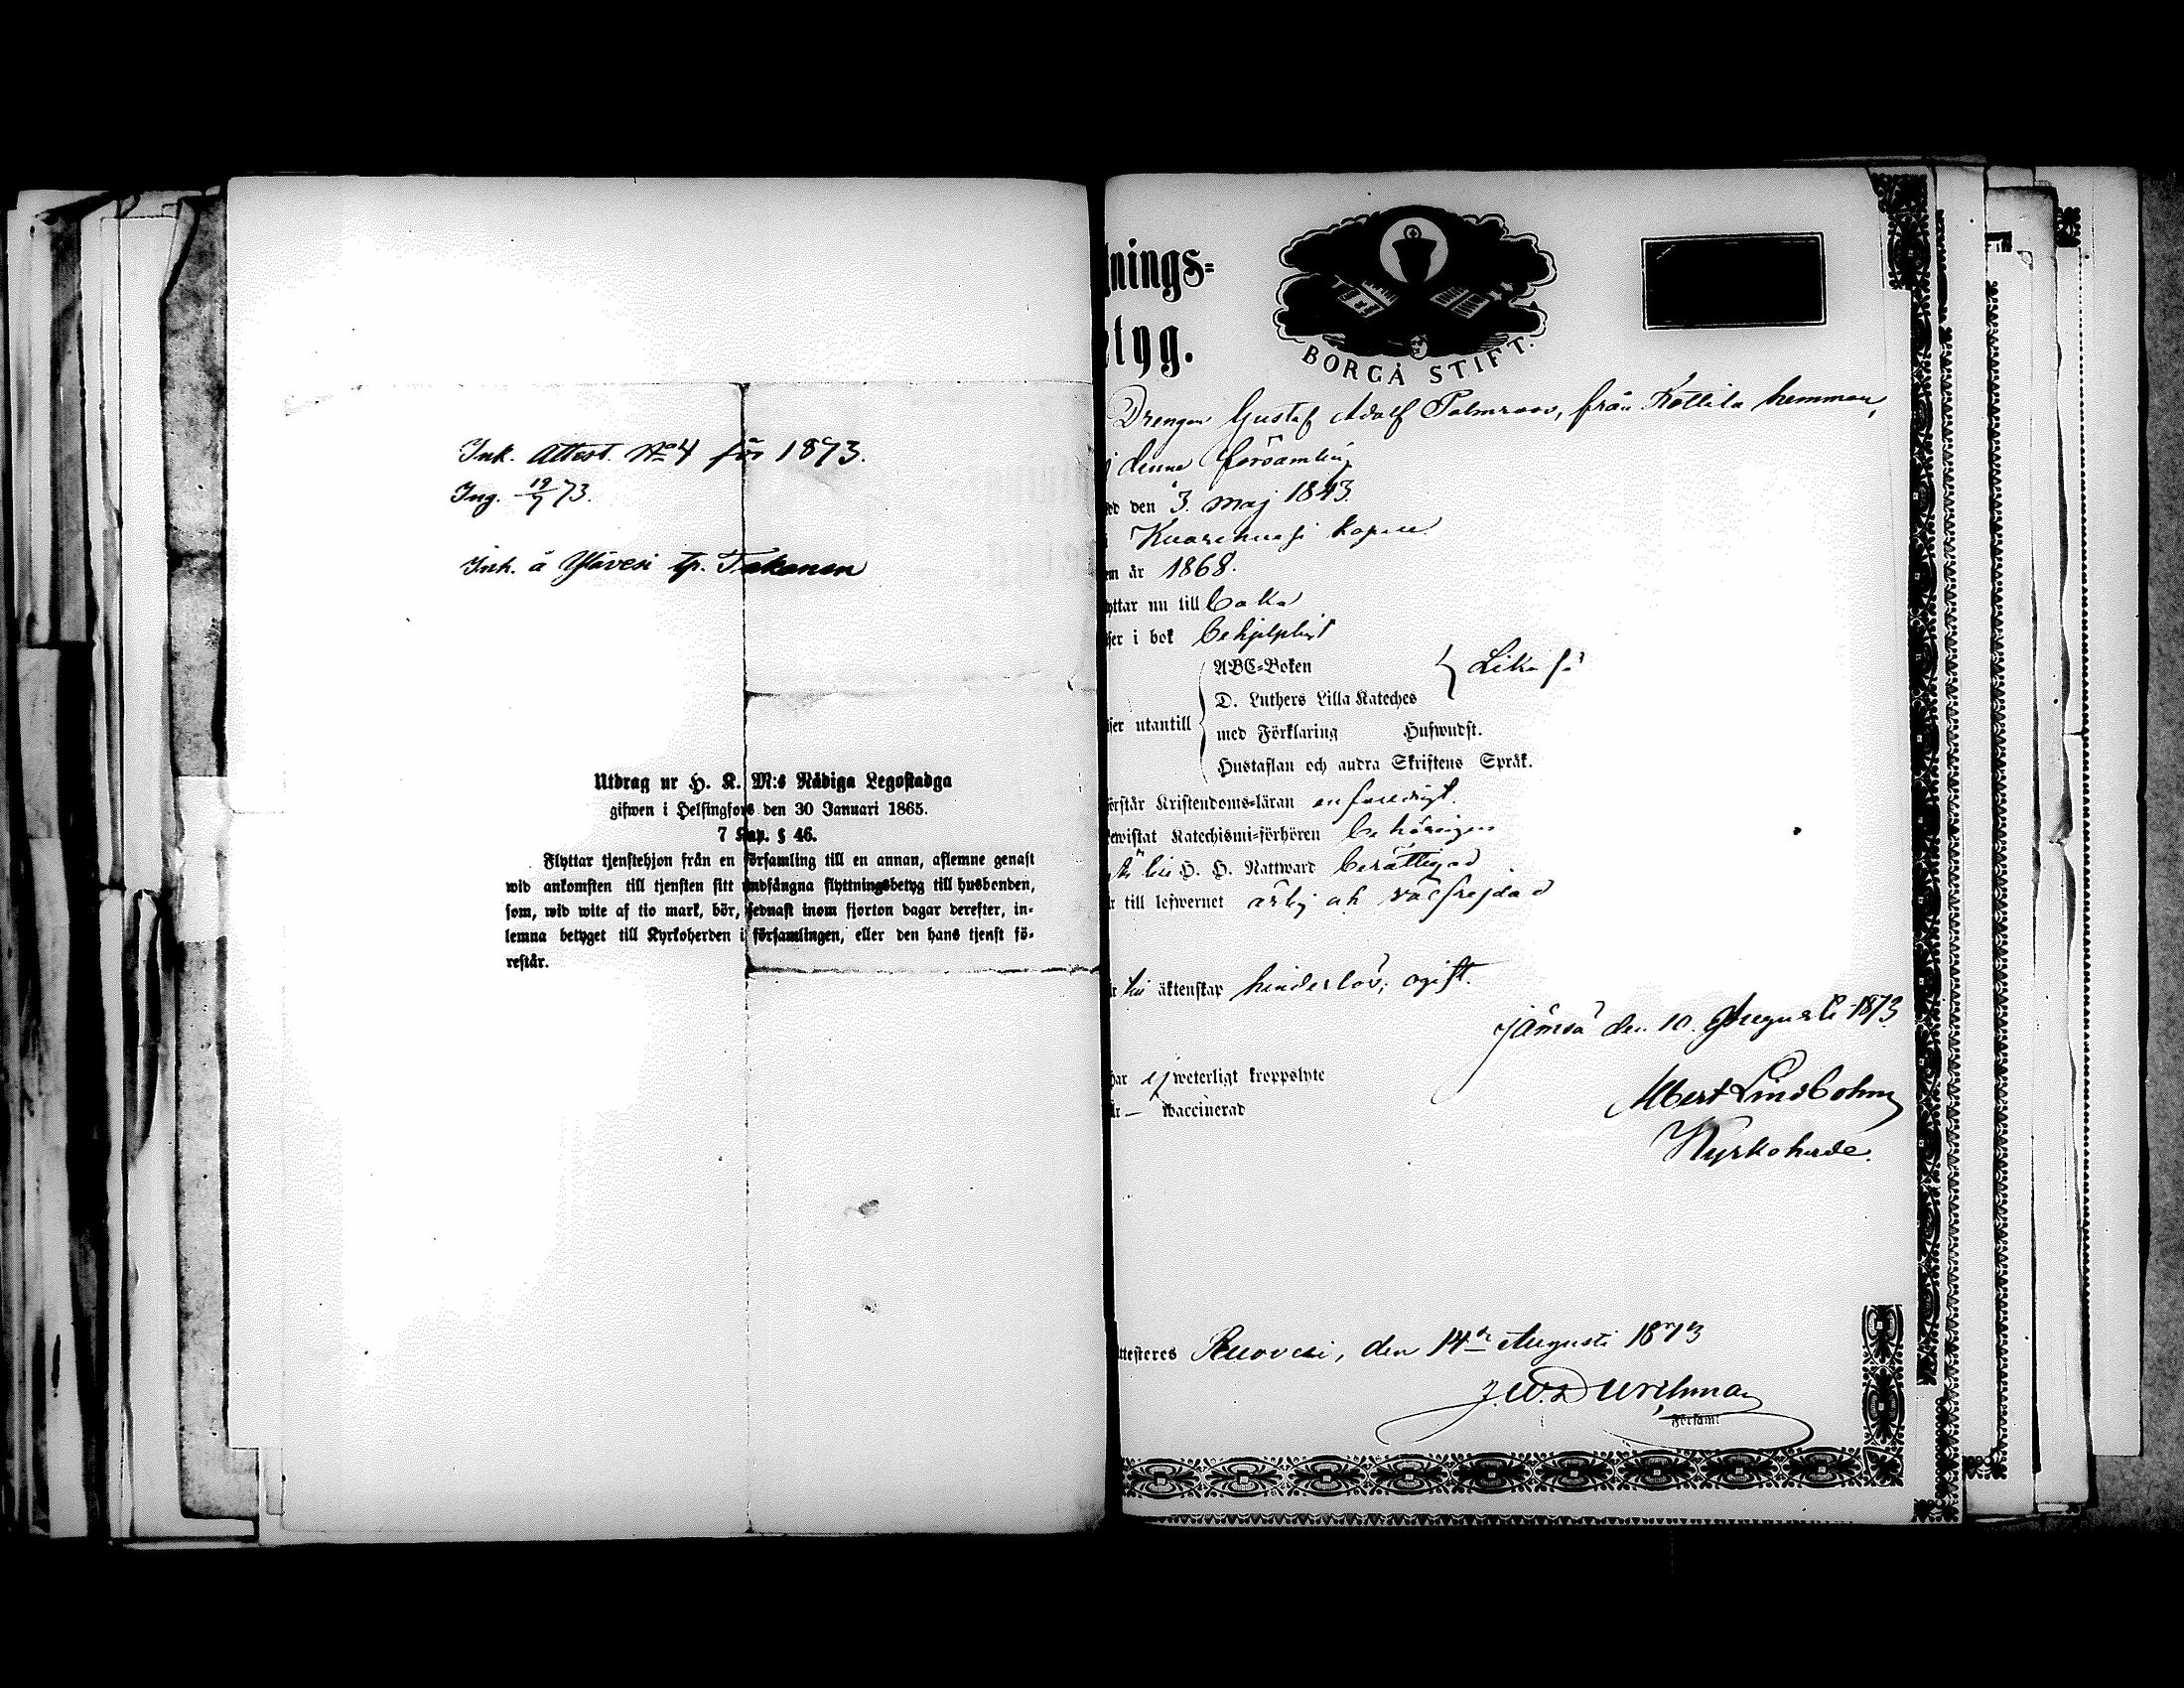 Ink. Attest. No 4 för 1873.
Ing. 19/7 73.
Ink. å Ylävesi
Utdrag ur H. K. M:s Nådiga Legostadga
gifwen i Helsingfors den 30 Januari 1865.
7 Kap. § 46.
Flyttar tjenstehjon från en församling till en annan, aflemne genast
wid ankomsten till tjensten sitt undfångna flyttningsbetyg till husbonden,
som, wid wite af tio mark, bör, sednast inom fjorton dagar derefter, in-
lemna betyget till Kyrkoherden i församlingen, eller den hans tjenst fö-
restår.
nings-
tyg.
BORGÅ STIFT.
Drengen Gustaf Adolf Palmroos, från Kottila hemman,
i denna församling
den 3. Maj 1843.
Kuorehvesi kapell
år 1868.
yttar nu till baka
i bok behjelpligt
ABC-Boken Lika så
D. Luthers Lilla Kateches
utantill
med Förklaring Huswudst.
Hustaflan och andra Skriftens Språk.
örstår Kristendoms-läran enfaldigt.
ewistat Katechismi-förhören behörigen
till H. H. Nattward berättigad
r till lefwernet ärlig och välfrejdad
till äktenskap hinderlös, ogift.
Jämsä den 10. Augusti 1873
Albert Lindbohm
Kyrkoherde.
har ej weterligt kroppslyte
är — waccinerad
ttesteres Ruovesi, den 14de Augusti 1873
J. W. Durchman
Församl